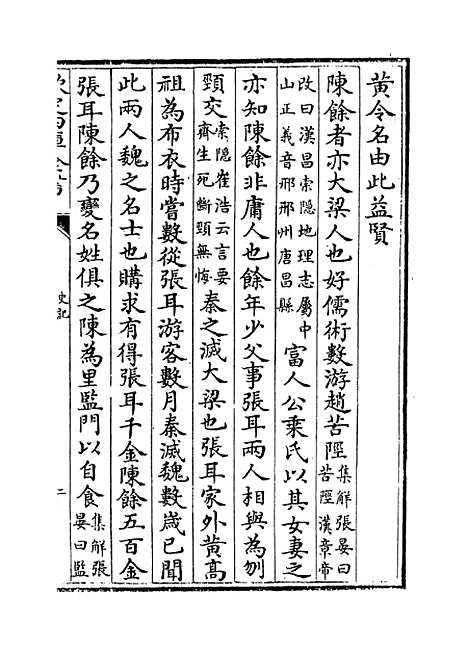 黄令名由此益賢
陳餘者亦大梁人也好儒術數游趙苦陘集解張晏曰苦陘漢章帝
改曰漢昌索隱地理志屬中山正義音邢邢州唐昌縣富人公乘氏以其女妻之
亦知陳餘非庸人也餘年少父事張耳兩人相與為刎
頸交索隱崔浩云言要齊生死斷頸無悔秦之滅大梁也張耳家外黄高
祖為布衣時嘗數從張耳游客數月秦滅魏數歲已聞
此兩人魏之名士也購求有得張耳千金陳餘五百金
張耳陳餘乃變名姓俱之陳為里監門以自食集解張晏曰監
史記
二